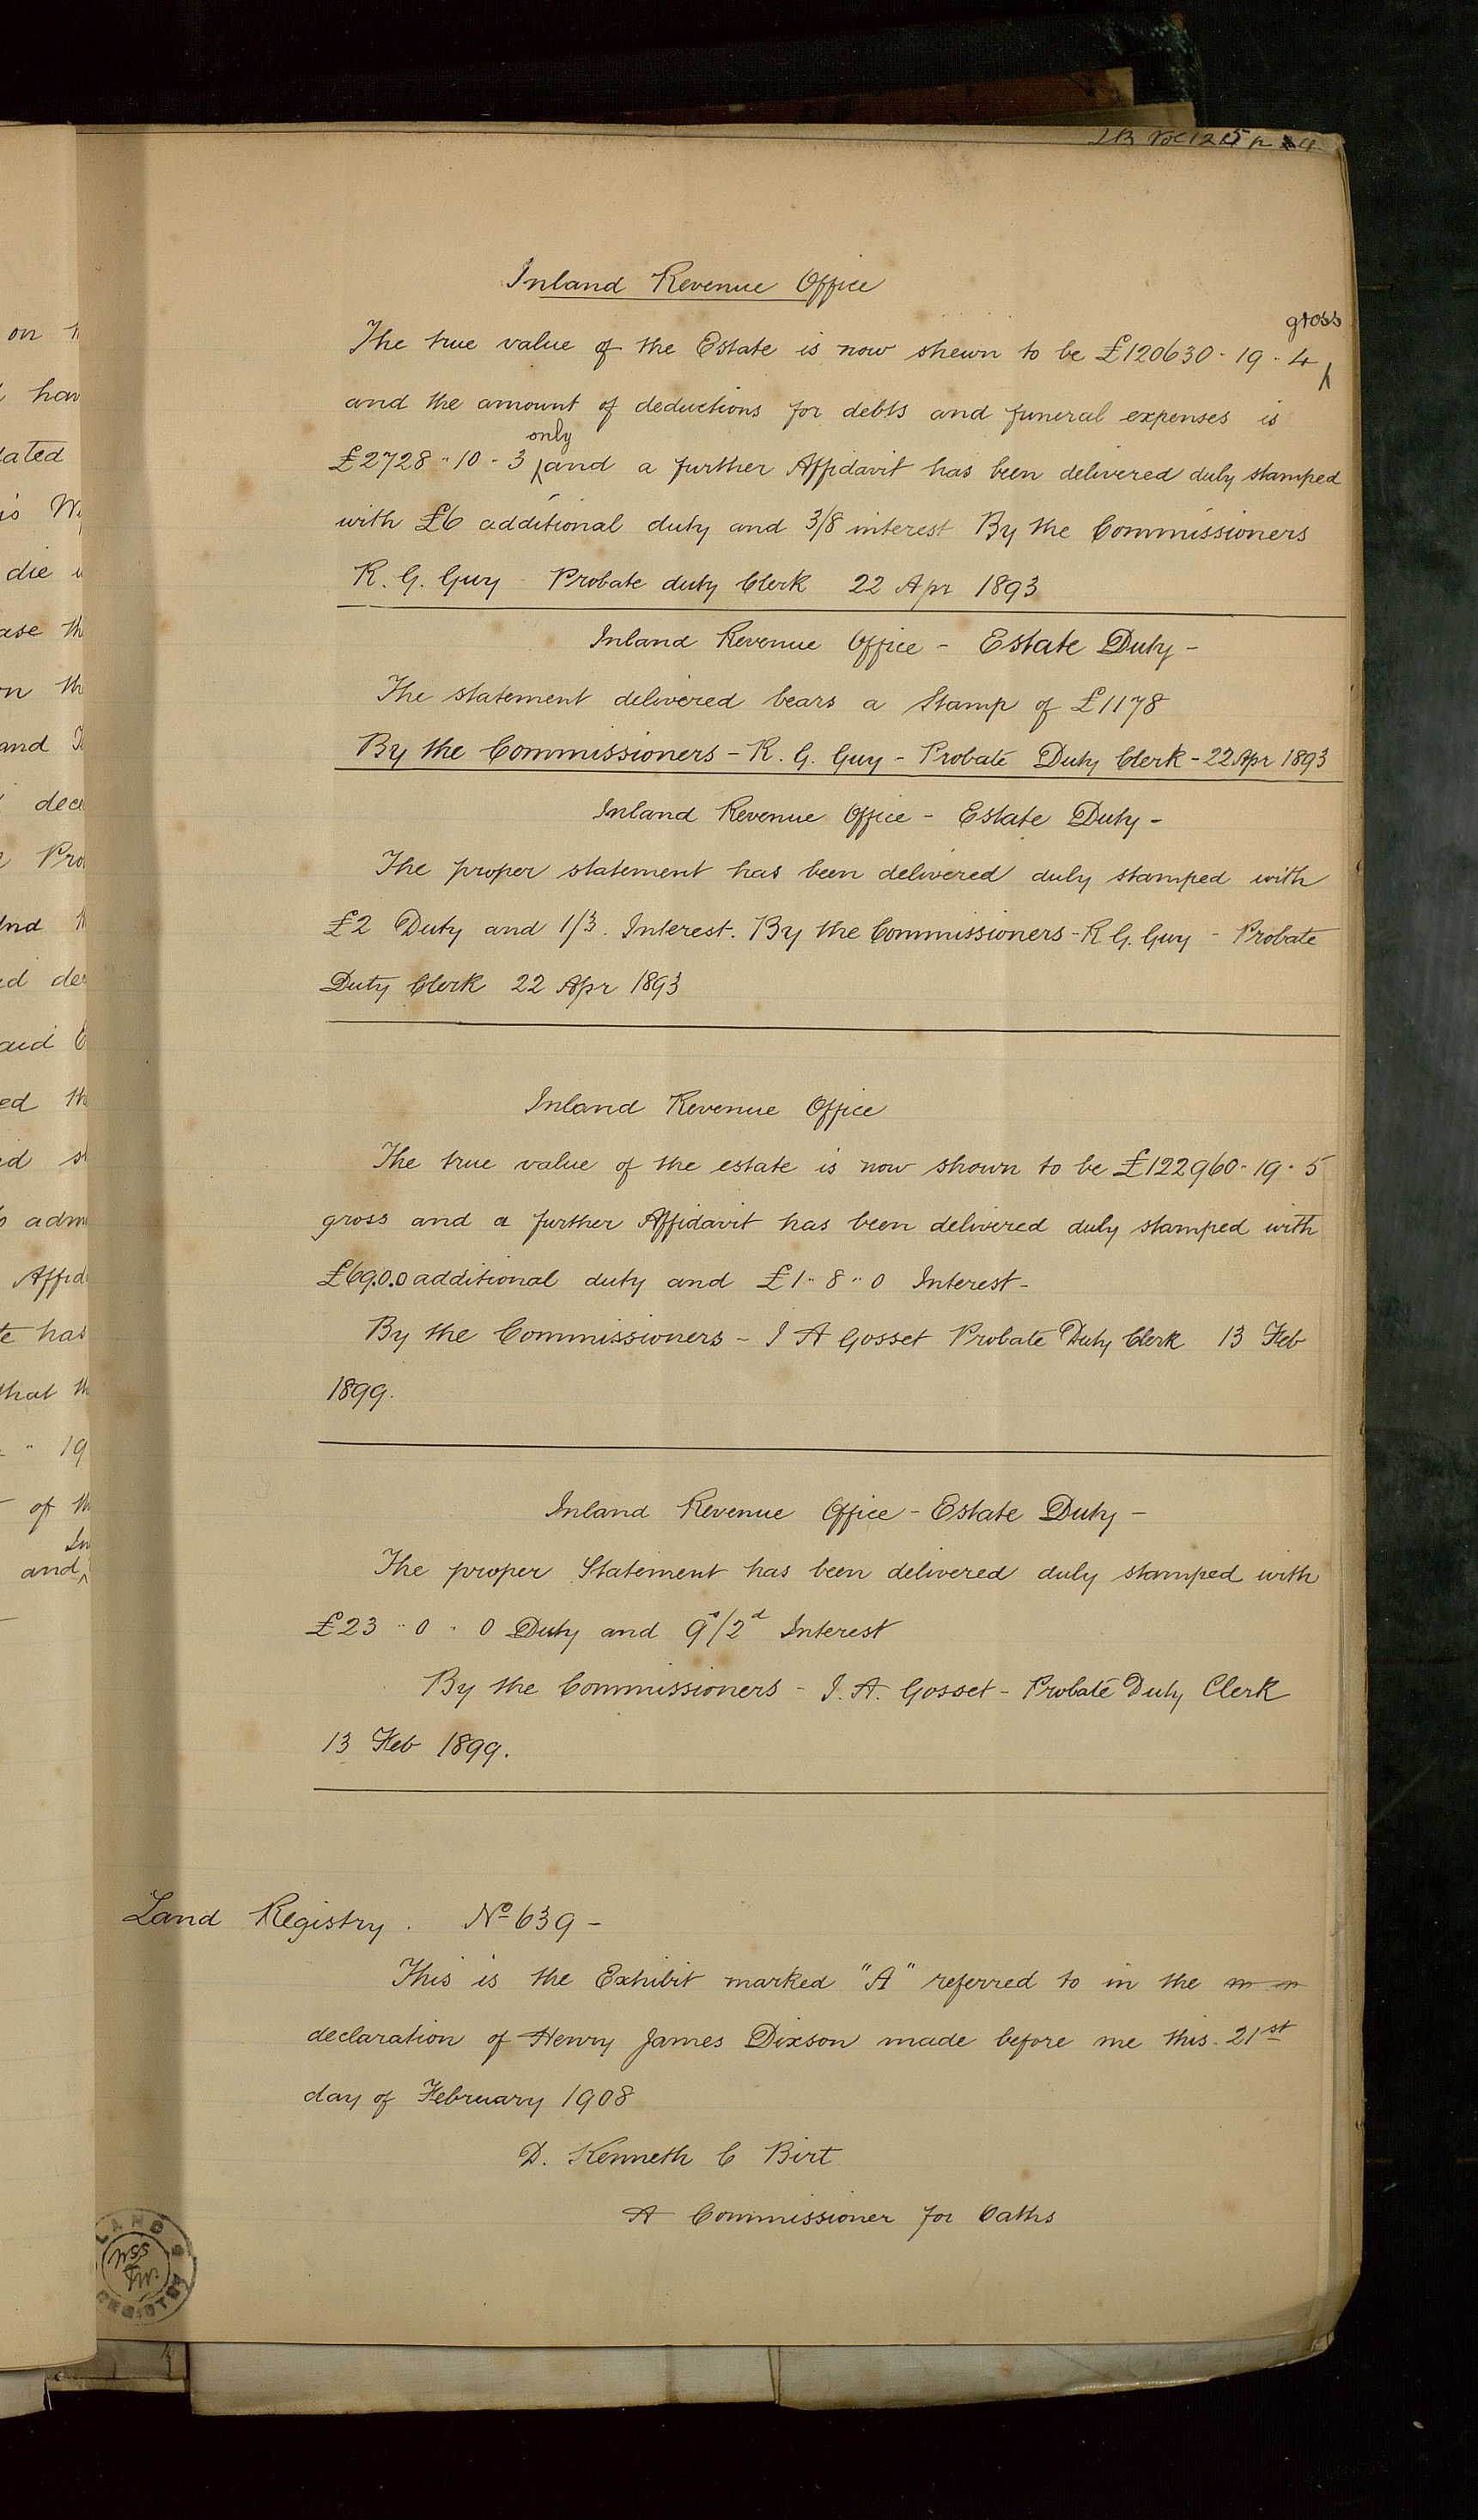 on
Inland Revenue Office
gross
The true value of the Estate is now shewn to be £120630 - 19 - 4
and the amount of deductions for debts and funeral expenses is
only
£2728 " 10 - 3 and a further Affidavit has been delivered duly stamped
with £6 additional duty and 3/8 interest By the Commissioners
R. G. Guy Probate duty Clerk 22 Apr 1893
Inland Revenue Office - Estate Duty -
The statement delivered bears a Stamp of £1178
By the Commissioners - R. G. Guy - Probate Duty Clerk - 22 Apr 1893
Inland Revenue Office - Estate Duty -
The proper statement has been delivered duly stamped with
£2 Duty and 1/3. Interest. By the Commissioners - R G. Guy - Probate
Duty Clerk 22 Apr 1893
Inland Revenue Office
The true value of the estate is now shown to be £122960 - 19 - 5
gross and a further Affidavit has been delivered duly stamped with
£69.0.0 additional duty and £1 " 8 " 0 Interest -
By the Commissioners - J A Gosset Probate Duty Clerk 13 Feb
1899.
Inland Revenue Office - Estate Duty -
The proper Statement has been delivered duly stamped with
£23 " 0 " 0 Duty and 9s/2d Interest
By the Commissioners - J. A. Gosset - Probate Duty Clerk
13 Feb 1899.
Land Registry. No 639 -
This is the Exhibit marked "A" referred to in the
declaration of Henry James Dixson made before me this 21st
day of February 1908
D. Kenneth C Birt
A Commissioner for Oaths
LAND REGISTRY